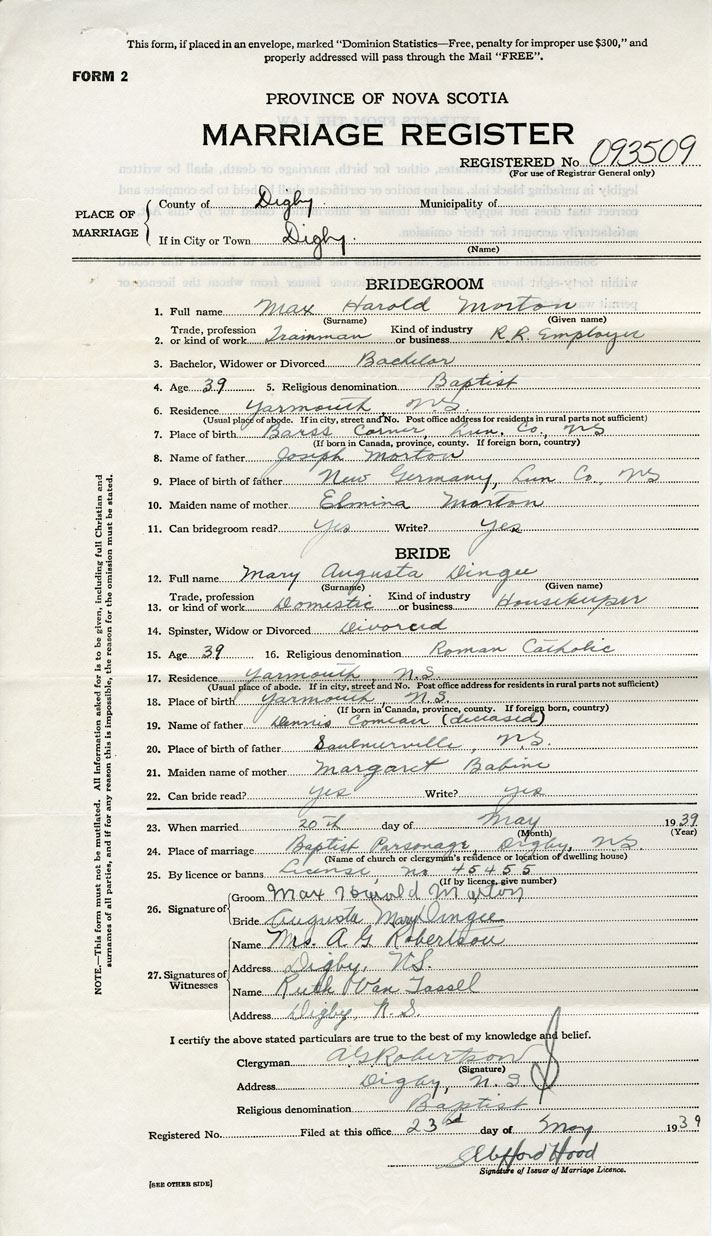 This form, if placed in an envelope, marked "Dominion Statistics—Free, penalty for improper use $300," and
properly addressed will pass through the Mail "FREE".
FORM 2
PROVINCE OF NOVA SCOTIA
MARRIAGE REGISTER
REGISTERED No. 093509
(For use of Registrar General only)
PLACE OF MARRIAGE
County of Digby Municipality of
If in City or Town Digby
(Name)
BRIDEGROOM
1. Full name Max Harold Morton
(Surname) (Given name)
2. Trade, profession or kind of work Trainman Kind of industry or business R.R. Employee
3. Bachelor, Widower or Divorced Bachelor
4. Age 39 5. Religious denomination Baptist
6. Residence Yarmouth N.S.
(Usual place of abode. If in city, street and No. Post office address for residents in rural parts not sufficient)
7. Place of birth Barss Corner, Lun. Co., NS
(If born in Canada, province, county. If foreign born, country)
8. Name of father Joseph Morton
9. Place of birth of father New Germany, Lun Co., NS
10. Maiden name of mother Elmina Morton
11. Can bridegroom read? Yes Write? Yes
BRIDE
12. Full name Mary Augusta Dingee
(Surname) (Given name)
13. Trade, profession or kind of work Domestic Kind of industry or business Housekeeper
14. Spinster, Widow or Divorced Divorced
15. Age 39 16. Religious denomination Roman Catholic
17. Residence Yarmouth N.S.
(Usual place of abode. If in city, street and No. Post office address for residents in rural parts not sufficient)
18. Place of birth Yarmouth, N.S.
(If born in Canada, province, county. If foreign born, country)
19. Name of father Dennis Comeau (deceased)
20. Place of birth of father Saulnierville, N.S.
21. Maiden name of mother Margaret Babine
22. Can bride read? Yes Write? Yes
23. When married 20th day of May 1939
(Month) (Year)
24. Place of marriage Baptist Parsonage, Digby, N.S.
(Name of church or clergyman's residence or location of dwelling house)
25. By licence or banns License no 45455
(If by licence, give number)
26. Signature of
Groom Max Harold Morton
Bride Augusta Mary Dingee
27. Signatures of Witnesses
Name Mrs. A G Robertson
Address Digby, N.S.
Name Ruth Van Tassel
Address Digby N.S.
I certify the above stated particulars are true to the best of my knowledge and belief.
Clergyman A G Robertson
(Signature)
Address Digby, N.S
Religious denomination Baptist
Registered No. Filed at this office 23rd day of May 1939
Clifford Hood
Signature of Issuer of Marriage Licence.
[SEE OTHER SIDE]
NOTE.—This form must not be mutilated. All Information asked for is to be given, including full Christian and
surnames of all parties, and if for any reason this is impossible, the reason for the omission must be stated.